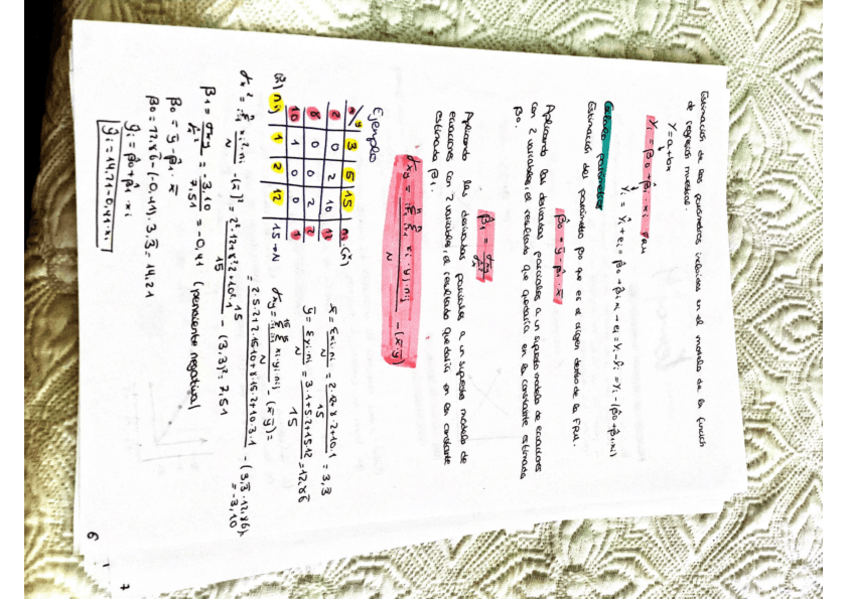 Estimación de los parámetros incluidos en el modelo de la función
de regresión muestral.
Y = a + bx
Yi = β̂0 + β̂1 · xi FRM
Yi = Ŷi + ei = β̂0 + β̂1 xi → ei = Yi - Ŷi = Yi - (β̂0 + β̂1 · xi)
parámetros
Estimación del parámetro β0 que es el origen dentro de la FRM.
Aplicando las derivadas parciales a un supuesto modelo de ecuaciones
con 2 variables, el resultado que quedaría en la constante estimada
β0.
β̂0 = ȳ - β̂1 · x̄
Aplicando las derivadas parciales a un supuesto modelo de
ecuaciones con 2 variables, el resultado que daría en la constante
estimada β1.
β̂1 = σxy / σx²
σxy = ΣΣ xi · yj · nij / N - (x̄ · ȳ)
Ejemplo
x/y 3 5 15 ni (x)
2 0 2 10 12
8 0 0 2 2
10 1 0 0 1
(y) nj 1 2 12 15 → N
x̄ = Σxi · ni / N = 2·12+8·2+10·1 / 15 = 3,3
ȳ = Σyi · ni / N = 3·1+5·2+15·12 / 15 = 12,86
σxy = ΣΣ xi · yj · nij / N - (x̄ · ȳ) =
= 2·5·2+2·15·10+8·15·2+10·3·1 / 15 - (3,3 · 12,86) = -3,10
σx² = Σ xi² · ni / N - (x̄)² = 2²·12+8²·2+10²·1 / 15 - (3,3)² = 7,51
β1 = σxy / σx² = -3,10 / 7,51 = -0,41 (pendiente negativa)
β0 = ȳ - β̂1 · x̄
β0 = 12,86 - (-0,41) · 3,3 = 14,21
ŷi = β̂0 + β̂1 · xi
ŷi = 14,21 - 0,41 · xi
6
7